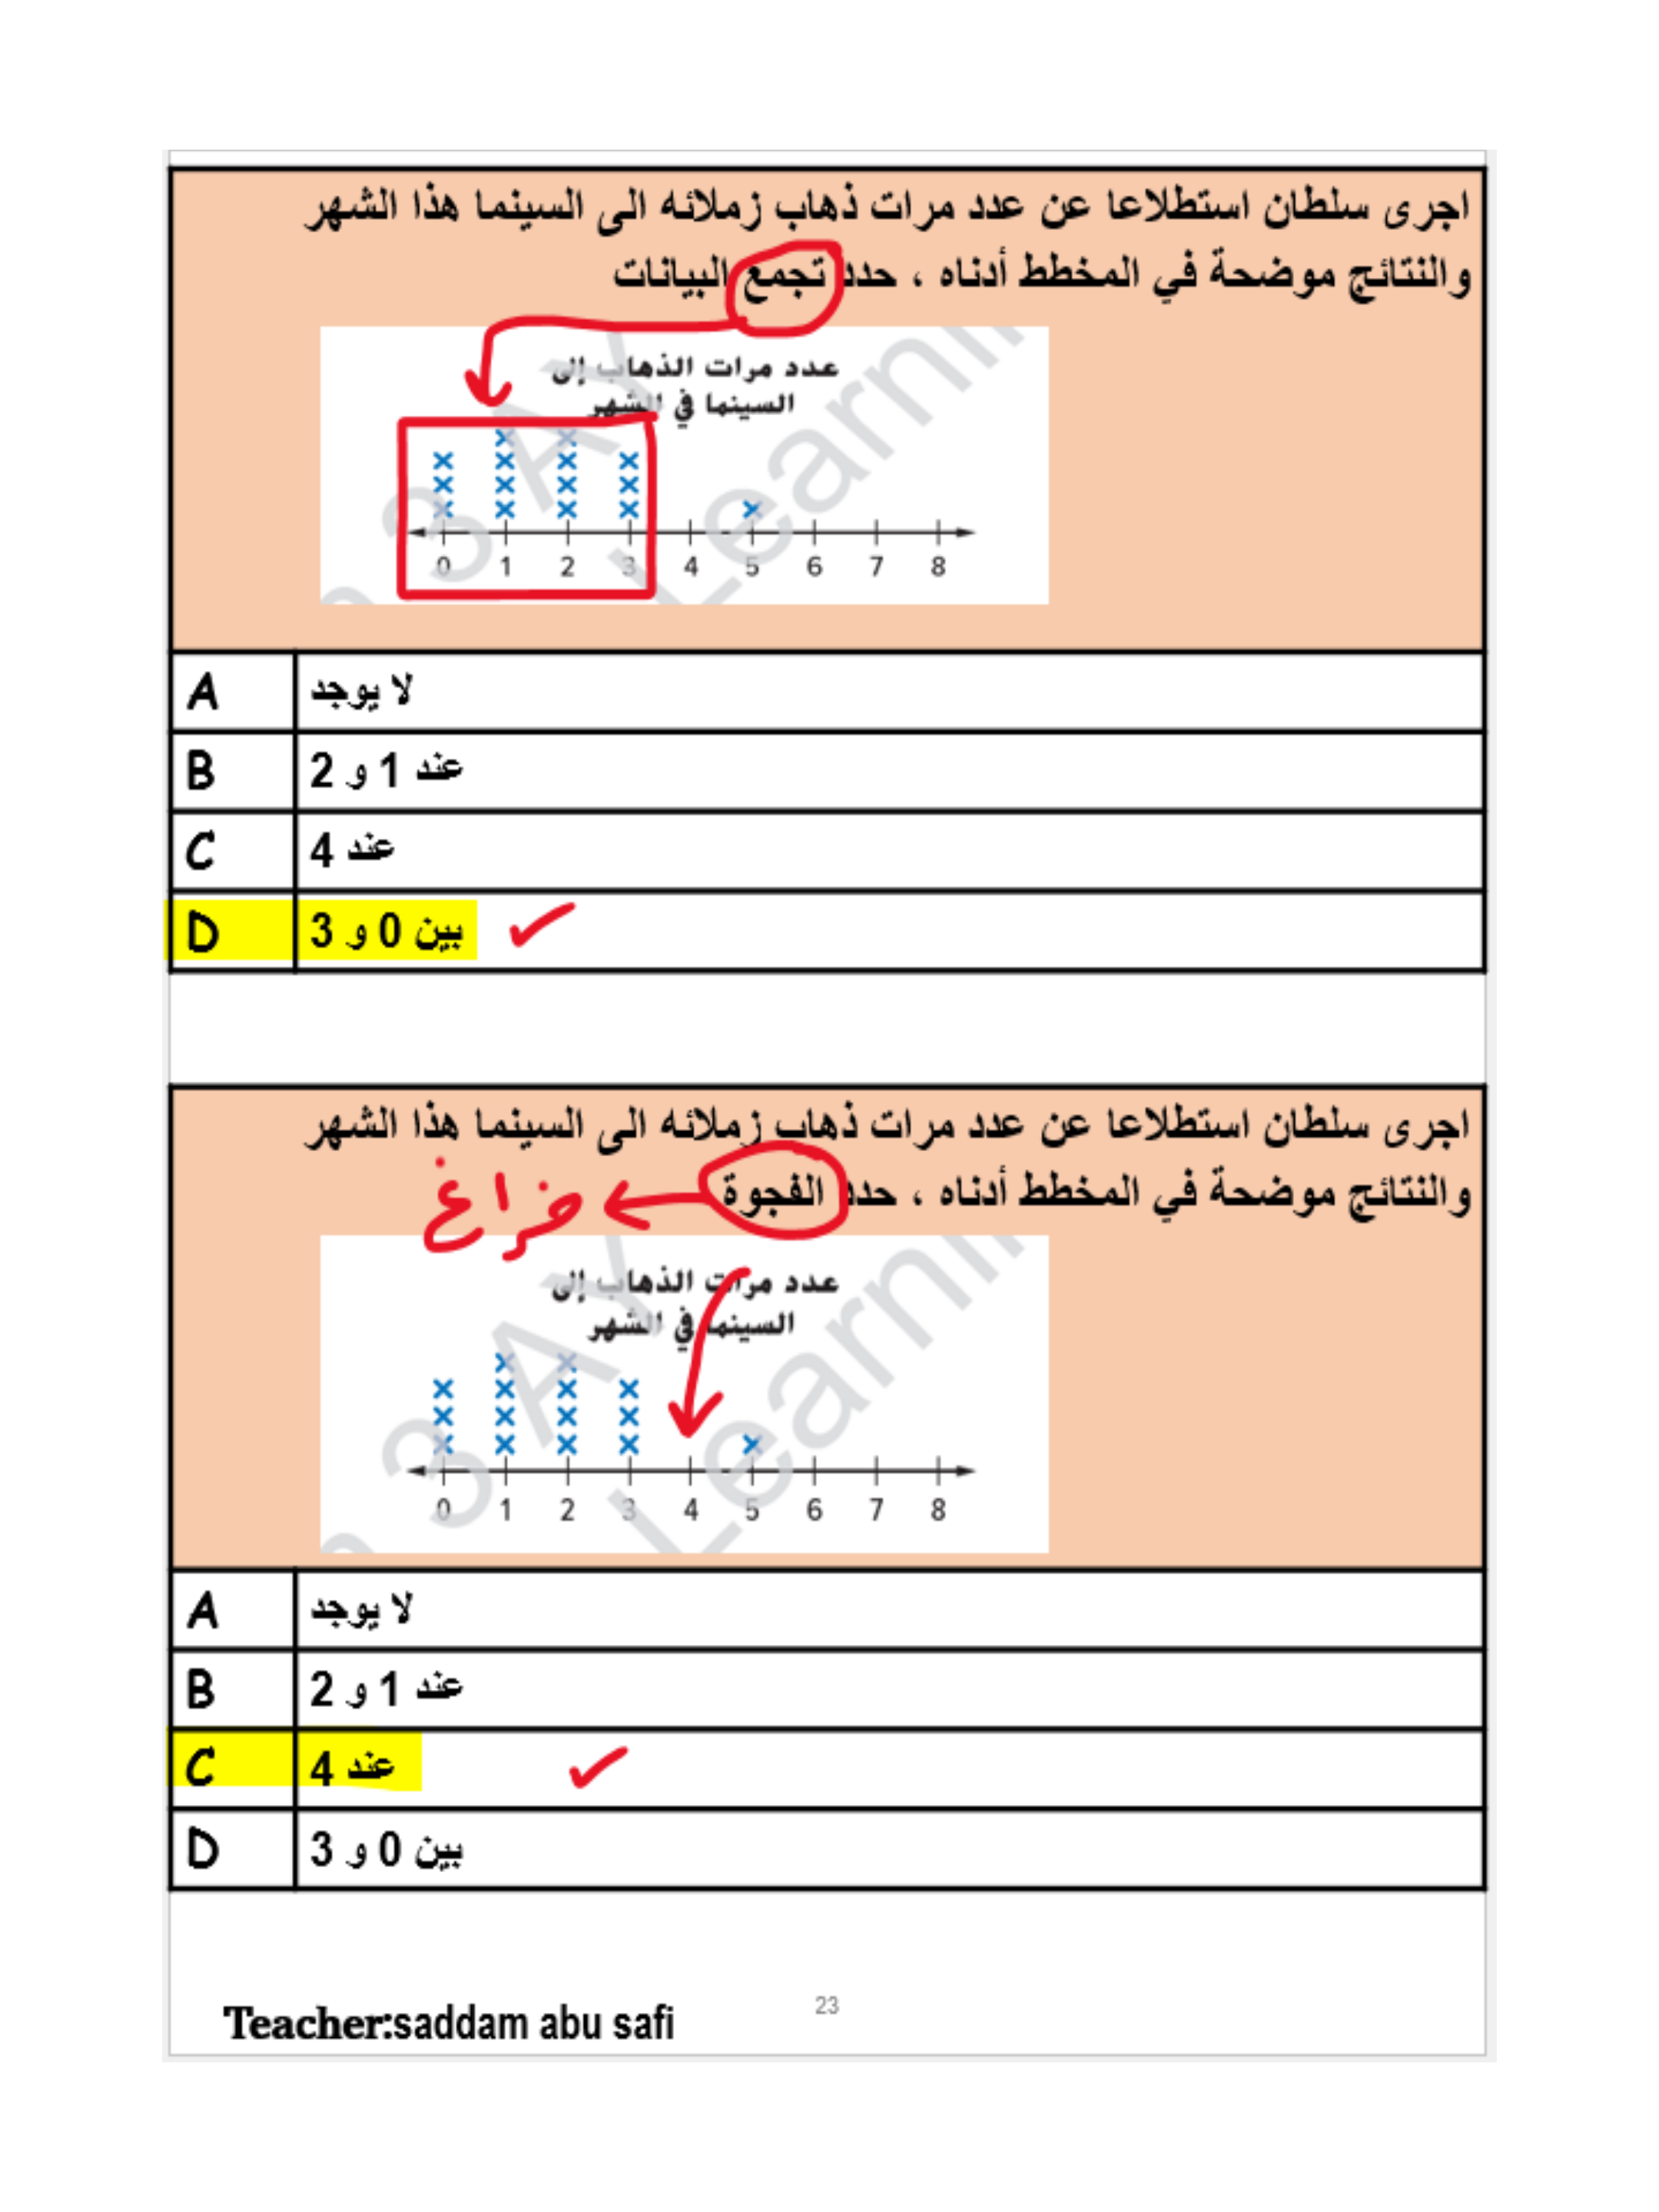 اجرى سلطان استطلاعا عن عدد مرات ذهاب زملائه الى السينما هذا الشهر
والنتائج موضحة في المخطط أدناه ، حدد تجمع البيانات
عدد مرات الذهاب إلى
السينما في الشهر
0 1 2 3 4 5 6 7 8
A لا يوجد
B عند 1 و 2
C عند 4
D بين 0 و 3
اجرى سلطان استطلاعا عن عدد مرات ذهاب زملائه الى السينما هذا الشهر
والنتائج موضحة في المخطط أدناه ، حدد الفجوة
فراغ
عدد مرات الذهاب إلى
السينما في الشهر
0 1 2 3 4 5 6 7 8
A لا يوجد
B عند 1 و 2
C عند 4
D بين 0 و 3
Teacher:saddam abu safi
23